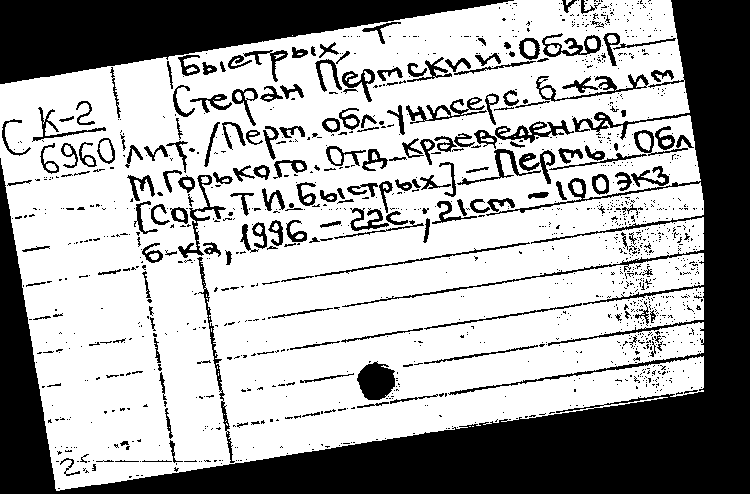 Быстрых, Т
Стефан Пермский: Обзор
лит. / Перм. обл. универс. б-ка им
М. Горького. Отд. краеведения;
[Сост. Т.И. Быстрых]. – Пермь: Обл
б-ка, 1996. – 22с.; 21cm. – 100 экз.
С К-2
6960